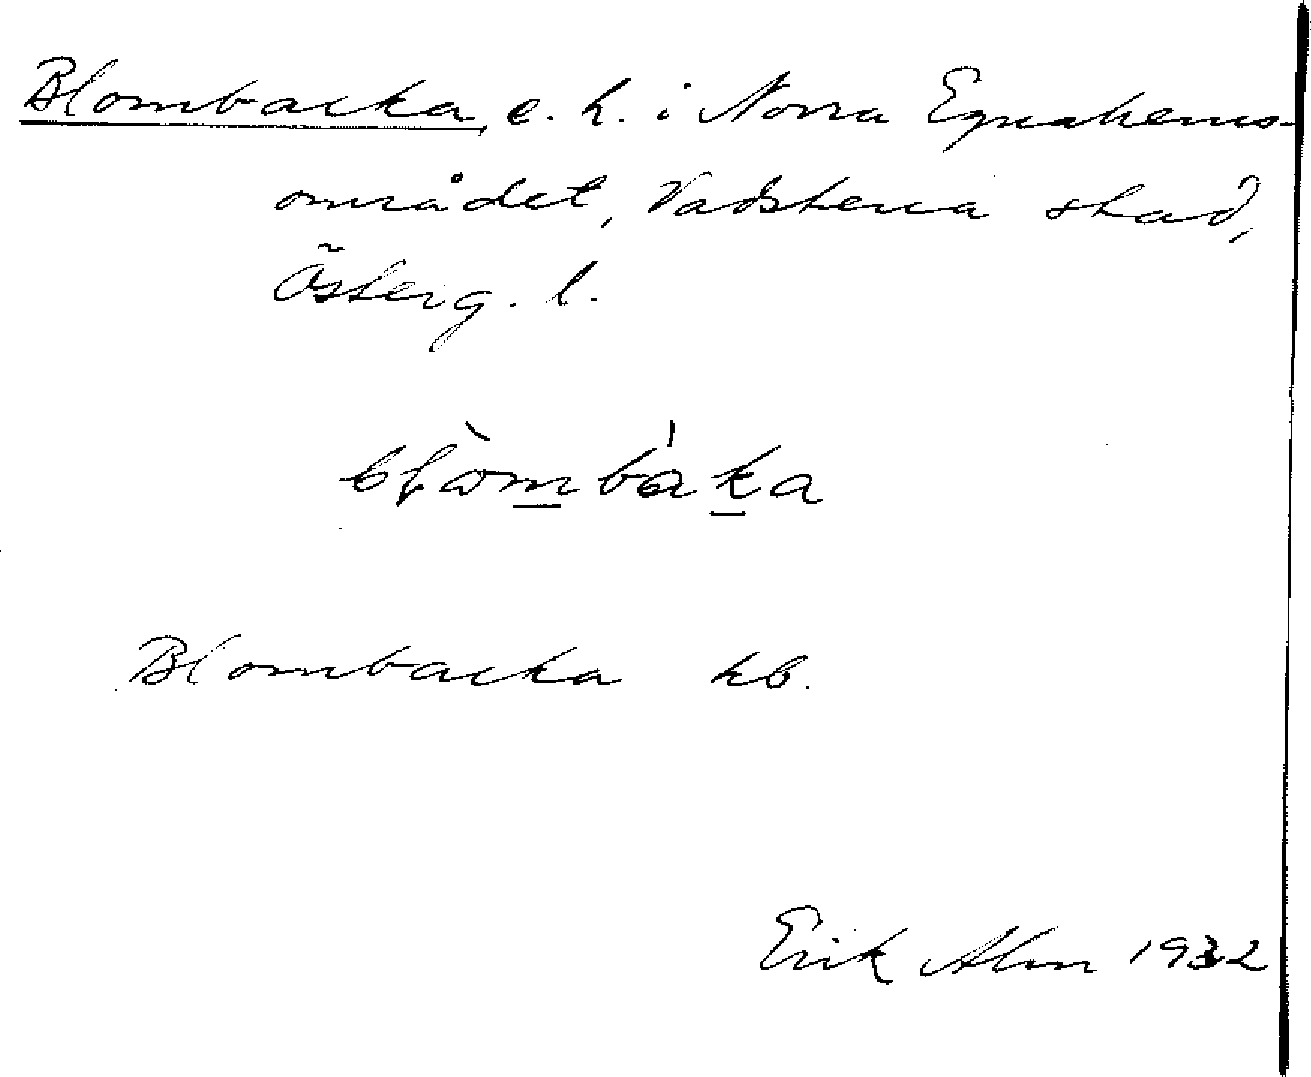 Blombacka, e. h. i Norra Egnahems-
området, Vadstena stad,
Österg. l.
blòmbáka
Blombacka kb.
Erik Alm 1932